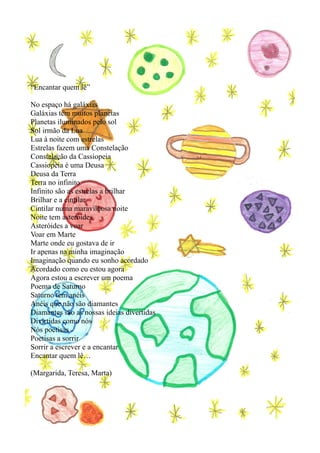 "Encantar quem lê"
No espaço há galáxias
Galáxias têm muitos planetas
Planetas iluminados pelo sol
Sol irmão da Lua
Lua à noite com estrelas
Estrelas fazem uma Constelação
Constelação da Cassiopeia
Cassiopeia é uma Deusa
Deusa da Terra
Terra no infinito
Infinito são as estrelas a brilhar
Brilhar e a cintilar
Cintilar numa maravilhosa noite
Noite tem asteróides
Asteróides a voar
Voar em Marte
Marte onde eu gostava de ir
Ir apenas na minha imaginação
Imaginação quando eu sonho acordado
Acordado como eu estou agora
Agora estou a escrever um poema
Poema de Saturno
Saturno tem anéis
Anéis que não são diamantes
Diamantes são as nossas ideias divertidas
Divertidas como nós
Nós poetisas
Poetisas a sorrir
Sorrir a escrever e a encantar
Encantar quem lê…
(Margarida, Teresa, Marta)